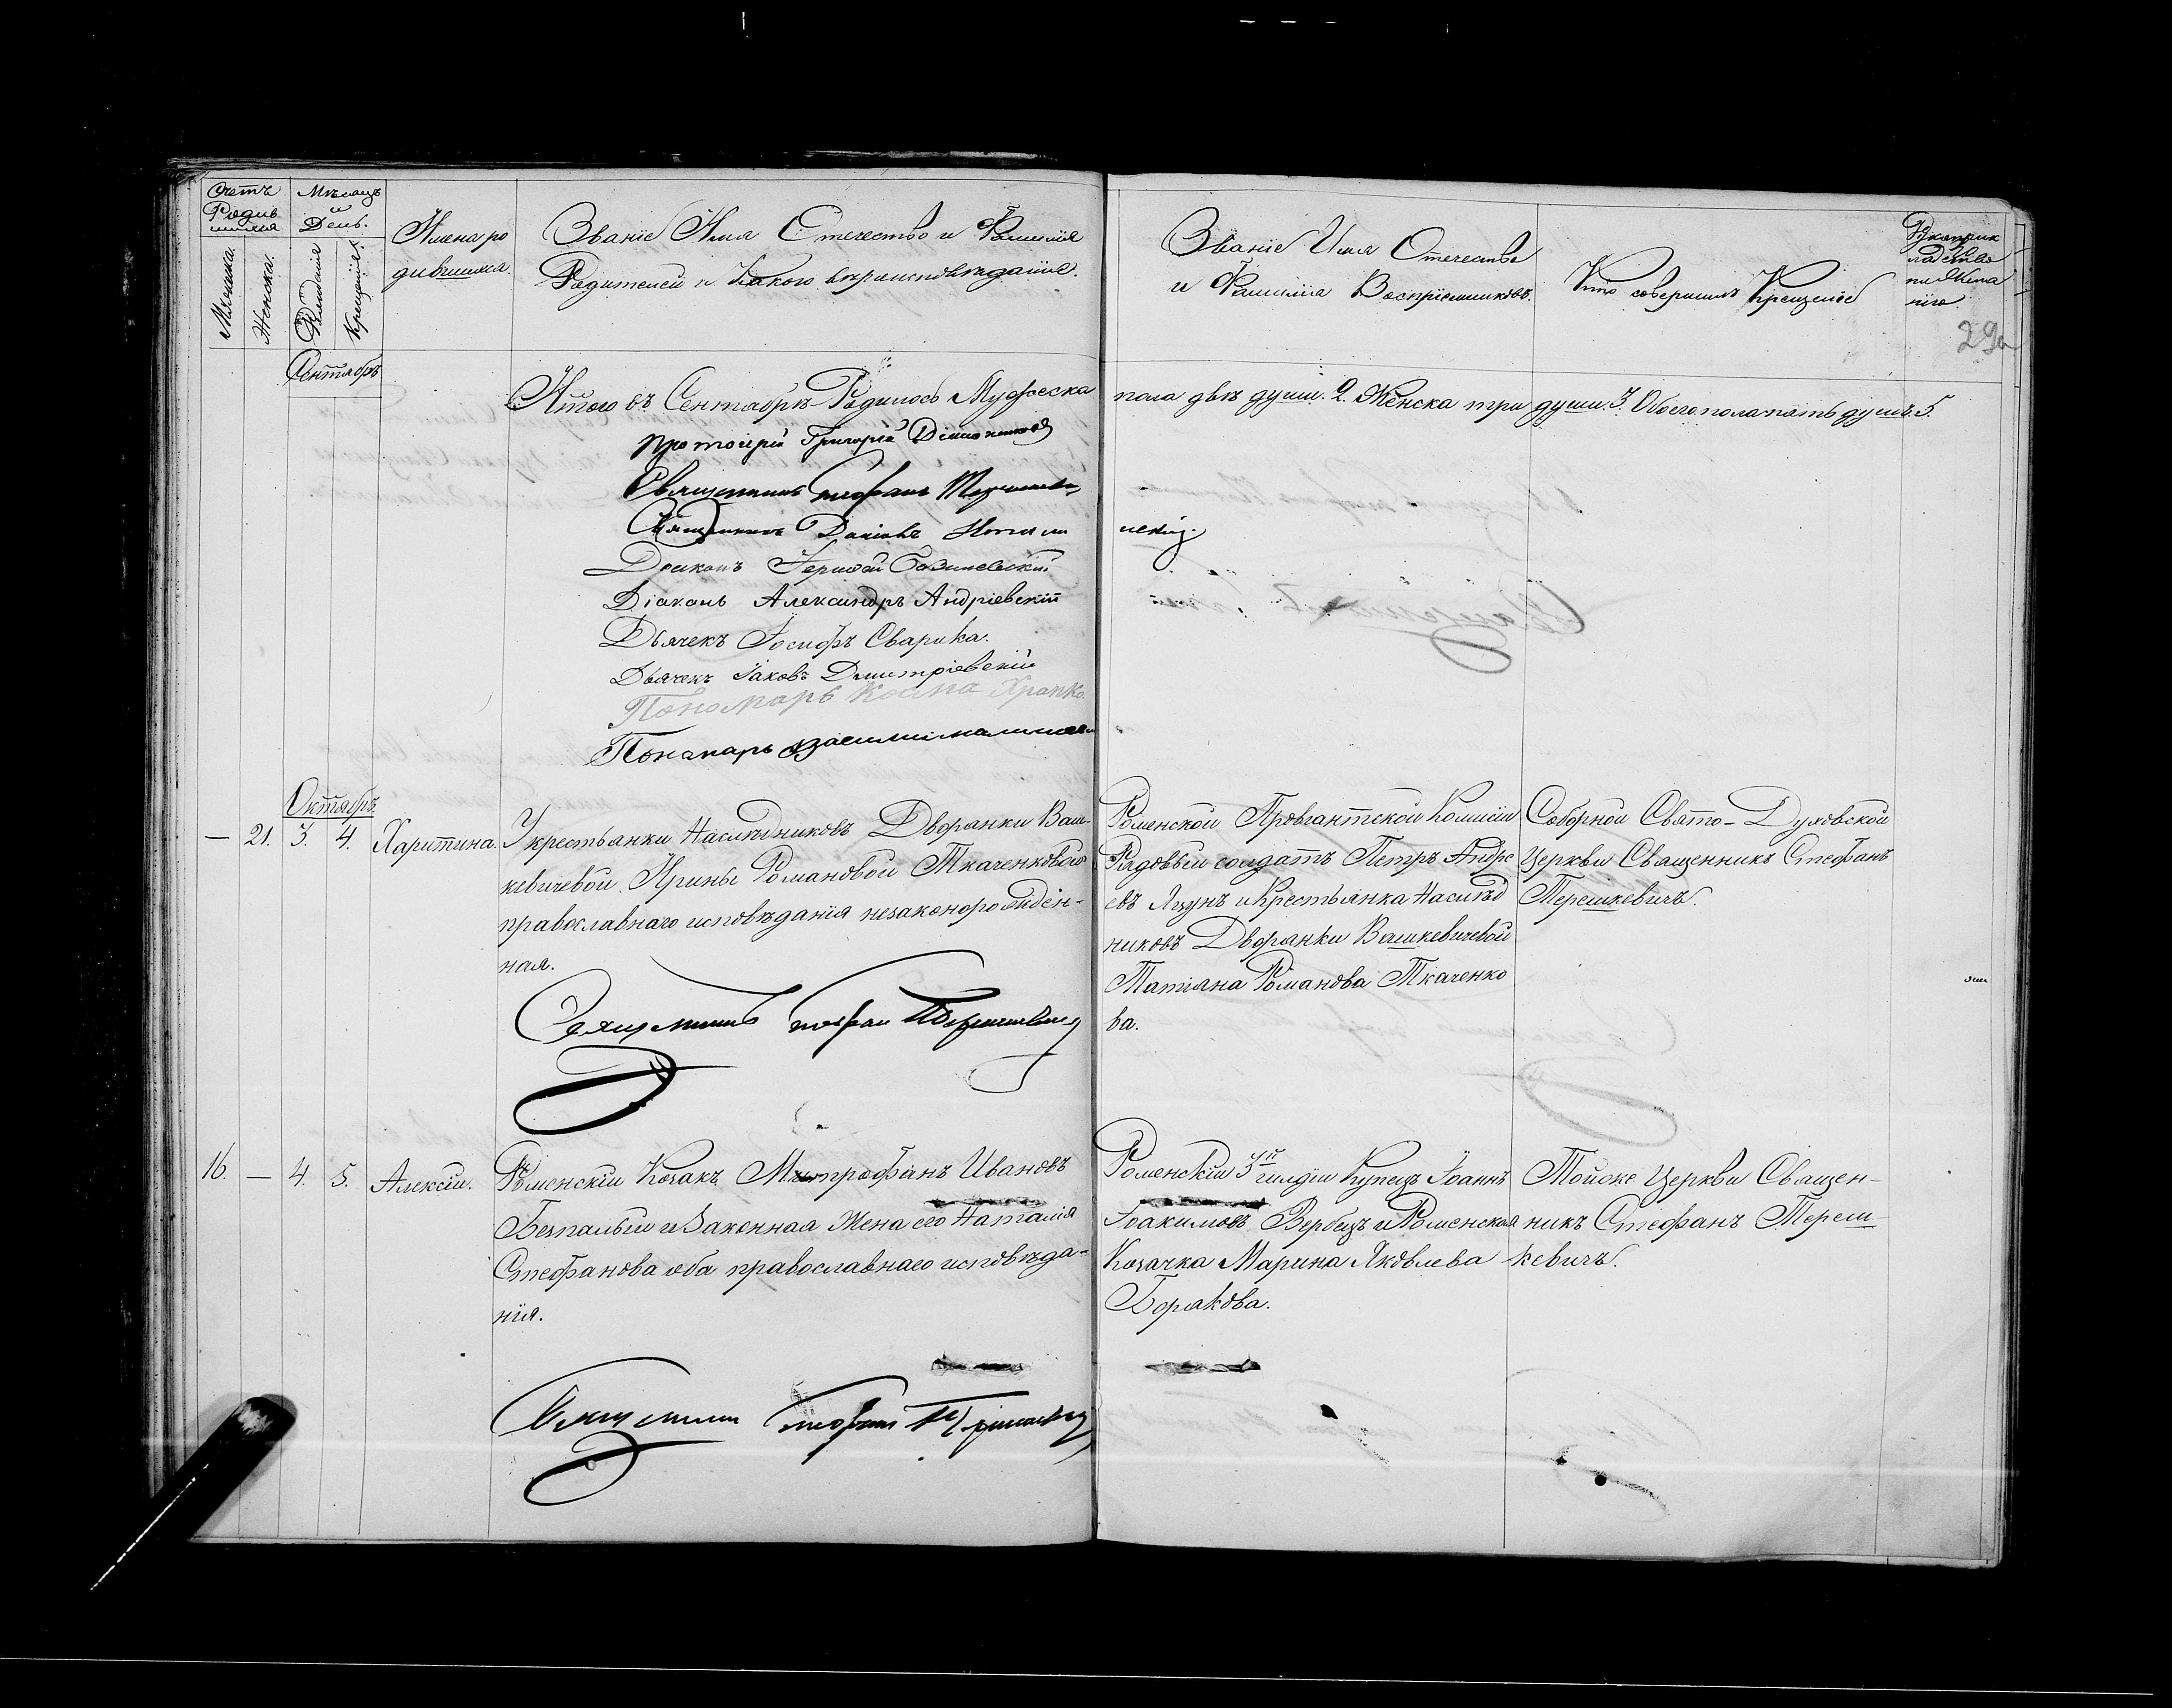 Счетъ Родив шихся
Мѣсяцъ и День.
Мужеска.
Женска.
Рожденія
Крещенія.
Имена ро
дившихся.
Званіе Имя Отечество и Фамилія
Родителей и Какого вѣроисповѣданія.
Званіе Имя Отечество
и Фамилія Воспріемниковъ.
Кто совершилъ Крещеніе
Рукоприк
ладство
по Жела
нію.
29
Сентябрь
Итого въ Сентябрѣ Родилось Мужеска пола двѣ души. 2. Женска три души. 3. Обоего пола пять душъ. 5.
Протоіерей Григорій
Священникъ Стефанъ Терешкевичъ
Священникъ Даніилъ
Діаконъ
Діаконъ Александръ Андріевскій
Дьячекъ Іосифъ Сварика.
Дьячекъ Іаковъ Дмитріевскій
Пономарь Косма Храпко
Понамарь
Октябрь
— 21. 3. 4. Харитина.
У крестьянки Наслѣдниковъ Дворянки Ваш-
кевичевой Ирины Романовой Ткаченковой
православнаго исповѣданія незаконорожден-
ная.
Священникъ Стефанъ Терешкевичъ
Роменской Провіантской Комисіи
Рядовый солдатъ Петръ Андре
евъ Яцунъ и Крестьянка Наслѣд
никовъ Дворянки Вашкевичевой
Татіана Романова Ткаченко
ва.
Соборной Свято-Духовской
Церкви Священникъ Стефанъ
Терешкевичъ.
16. — 4. 5. Алексій.
Роменскій Козакъ Митрофанъ Ивановъ
Безпалый и Законная Жена его Наталія
Стефанова оба православнаго исповѣда-
нія.
Священникъ Стефанъ Терешкевичъ
Роменскій 3й гилдіи Купецъ Іоаннъ
Іоакимовъ Вербицъ и Роменская
Козачка Марина Яковлева
Борякова.
Тойже Церкви Священ-
никъ Стефанъ Тереш-
кевичъ.